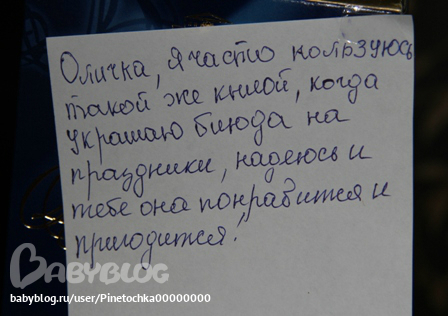 Оличка, я часто кользуюсь
такой же книгой, когда
украшаю блюда на
праздники, надеюсь и
тебе она понравится и
пригодится!
BABYBLOG
babyblog.ru/user/Pinetochka00000000